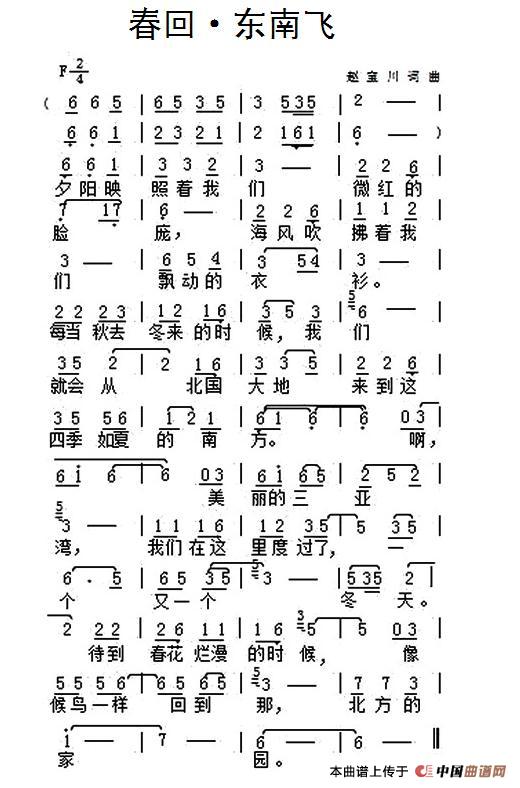 春回·东南飞
F 2/4
赵宝川 词 曲
( 6 6 5 | 6 5 3 5 | 3 535 | 2 — |
6 6 1 | 2 3 2 1 | 2 161 | 6 — )
6 6 1 | 3 3 2 | 3 — | 2 2 6
夕阳映 照着我 们 微红的
7 17 | 6 — | 2 2 6 | 1 1 2
脸 庞， 海风吹 拂着我
3 — | 6 5 4 | 3 54 | 3 —
们 飘动的 衣 衫。
22 23 | 12 16 | 3 5 3 | 5 6 —
每当秋去 冬来的时 候，我 们
35 2 | 2 16 | 3 3 5 | 2 2 6
就会从 北国 大地 来到这
35 56 | 1 2 1 | 61 6 | 6 03
四季如夏 的南 方。 啊，
61 6 | 6 03 | 61 63 | 2 5 2
美 丽的三 亚
5 3 — | 11 16 | 12 35 | 5 35
湾， 我们在这 里度过了， 一
6 · 5 | 65 35 | 5 3 — | 535 2
个 又一个 冬 天。
2 22 | 26 11 | 16 3 5 | 5 03
待到 春花烂漫 的时候， 像
55 56 | 6 65 65 | 5 3 — | 7 7 3
候鸟一样 回到 那， 北方的
1 — | 7 — | 6 — | 6 — ‖
家 园。
本曲谱上传于 中国曲谱网